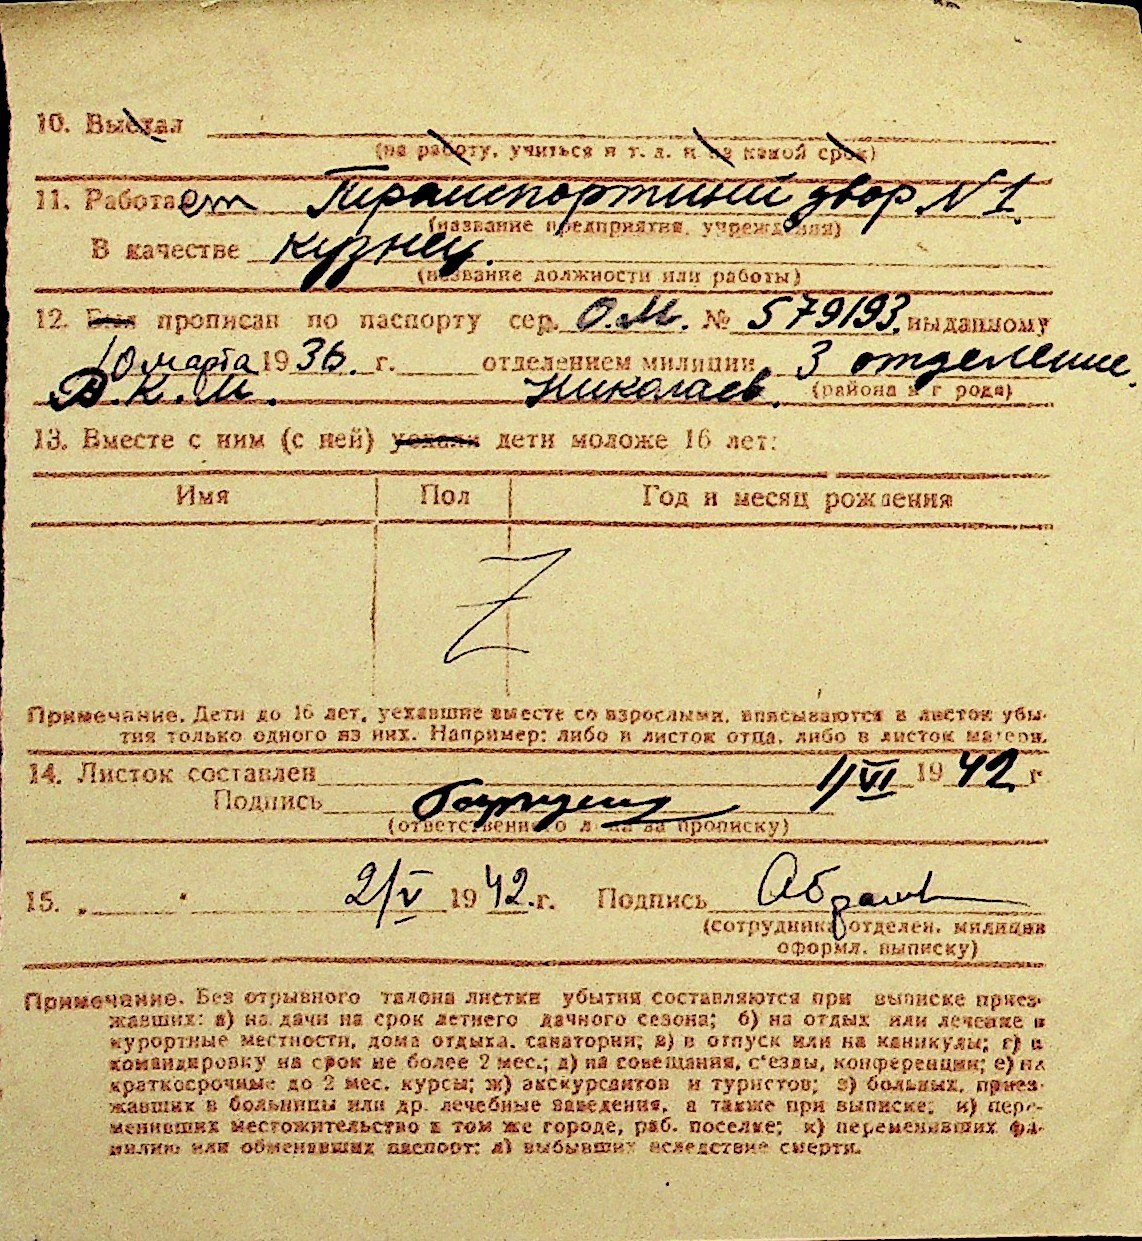 10. Выехал
(на работу, учиться и т. д. и на какой срок)
11. Работает Транспортный двор № 1.
(название предприятия, учреждения)
В качестве кузнец.
(название должности или работы)
12. Был прописан по паспорту сер. О.М. № 579193. выданному
10 марта 1936. г. отделением милиции 3 отделение.
Р.К.М. Николаев. (района и города)
13. Вместе с ним (с ней) уехали дети моложе 16 лет:
Имя Пол Год и месяц рождения
Z
Примечание. Дети до 16 лет, уехавшие вместе со взрослыми, вписываются в листок убы-
тия только одного из них. Например: либо в листок отца, либо в листок матери.
14. Листок составлен 1/VI 1942 г.
Подпись
(ответственного лица за прописку)
15. " " 2/V 1942. г. Подпись
(сотрудника отделен. милиции
оформл. выписку)
Примечание. Без отрывного талона листки убытия составляются при выписке приез-
жавших: а) на дачи на срок летнего дачного сезона; б) на отдых или лечение в
курортные местности, дома отдыха, санатории; в) в отпуск или на каникулы; г) в
командировку на срок не более 2 мес.; д) на совещания, с'езды, конференции; е) на
краткосрочные до 2 мес. курсы; ж) экскурсантов и туристов; з) больных, приез-
жавших в больницы или др. лечебные заведения, а также при выписке; и) пере-
менивших местожительство в том же городе, раб. поселке; к) переменивших фа-
милию или обменявших паспорт; л) выбывших вследствие смерти.